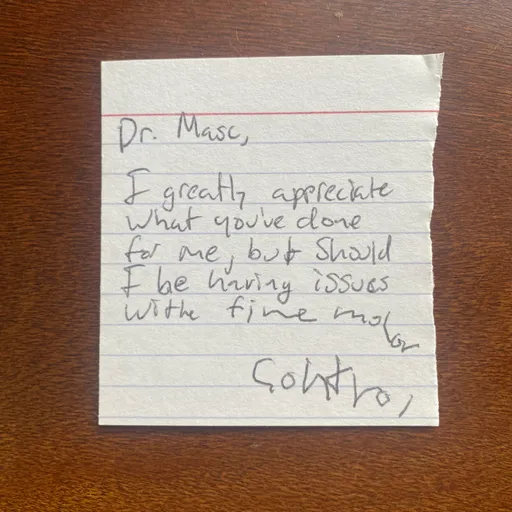 Dr. Masc,
I greatly appreciate
what you've done
for me, but should
I be having issues
withe fine motor
control